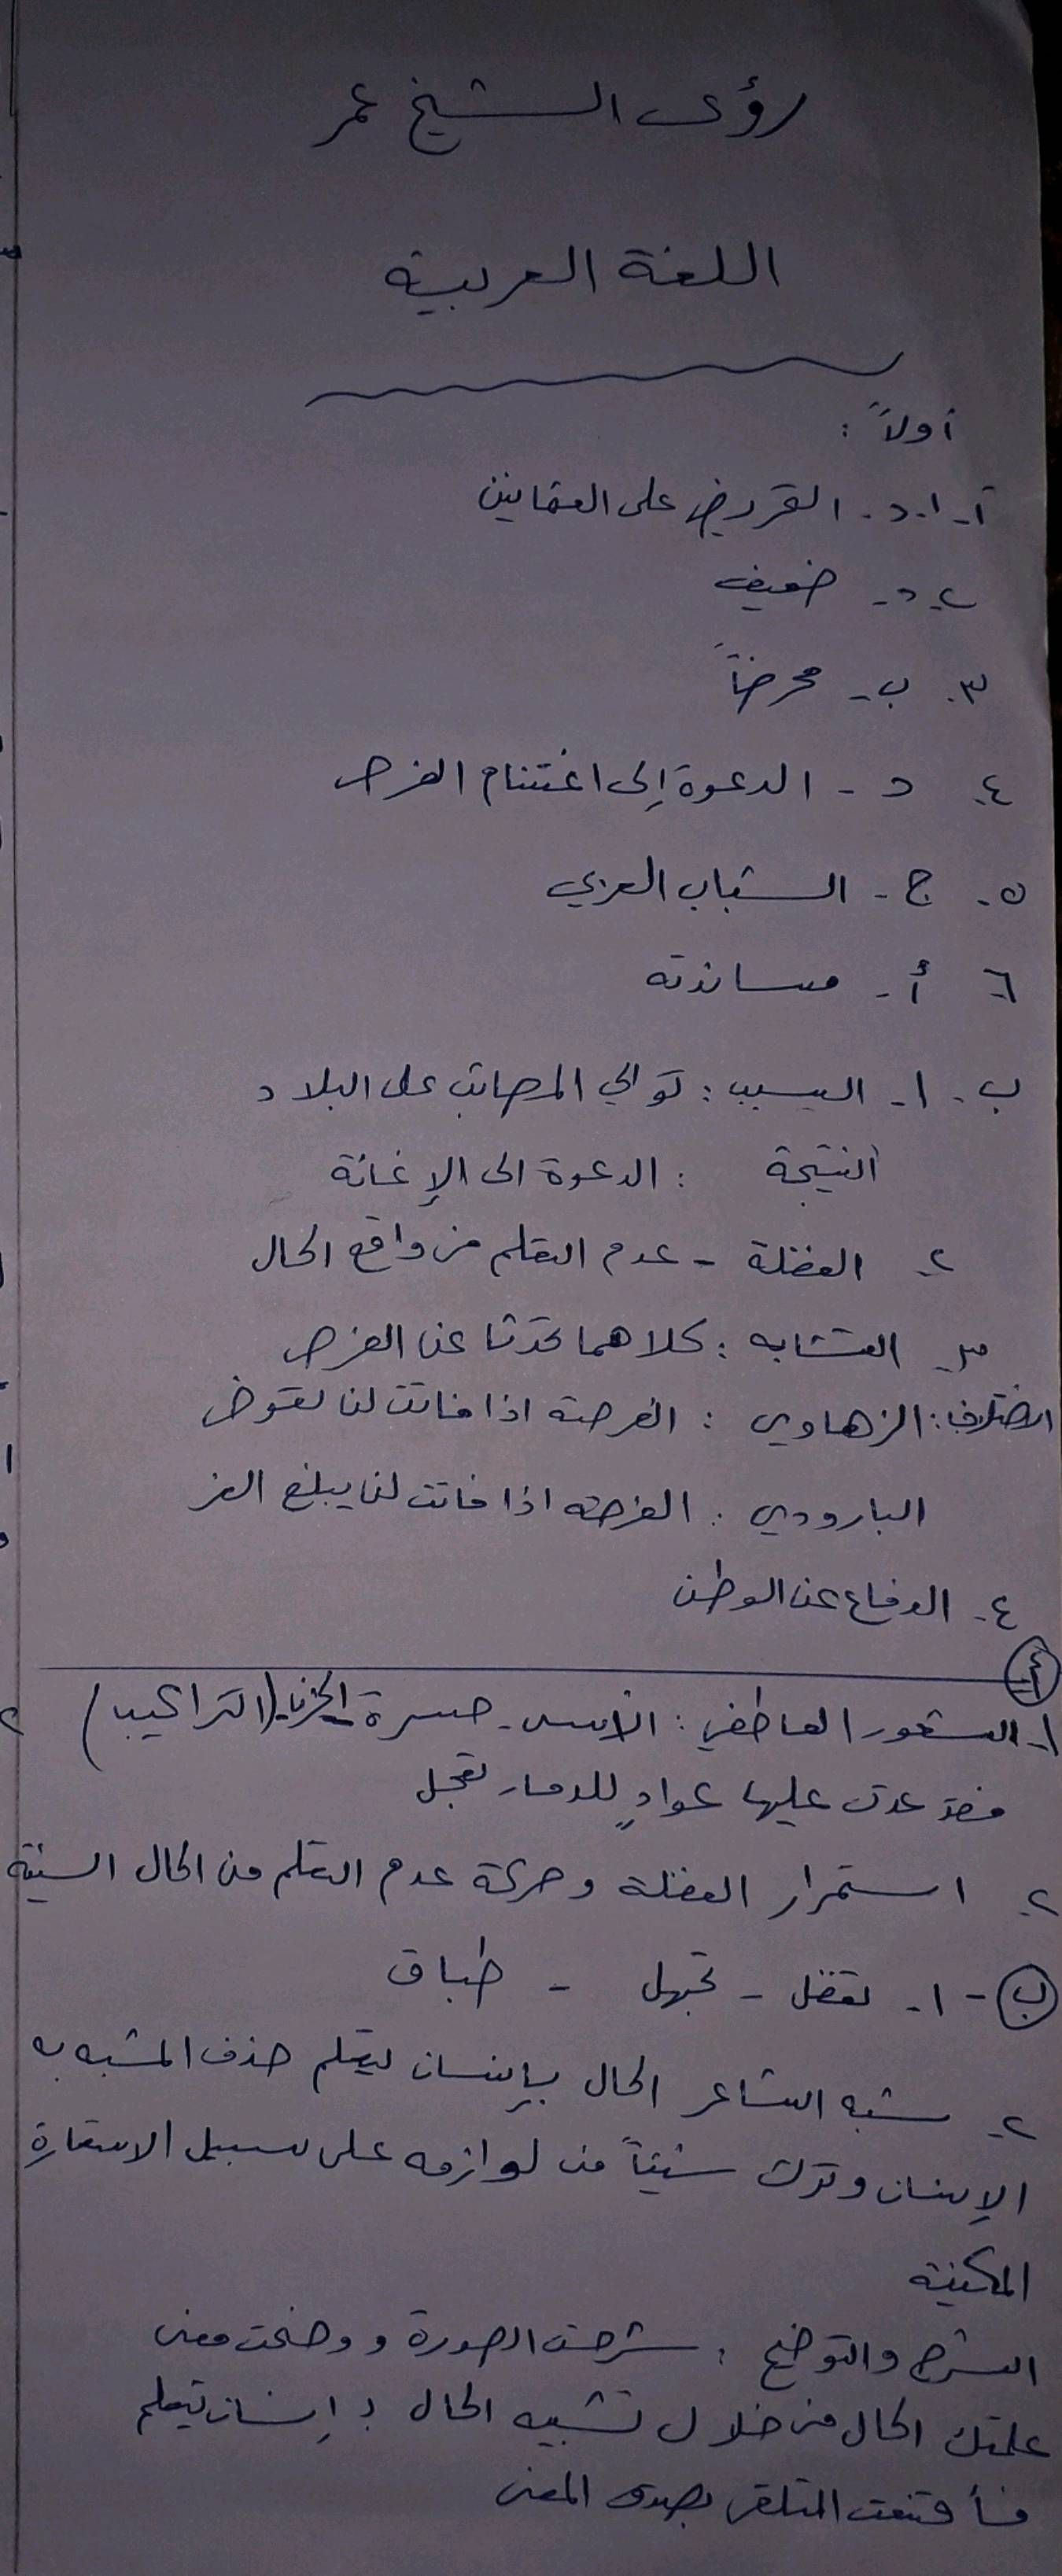 رؤى الشيخ عمر
اللغة العربية
أولاً :
أ- ١. د. التحريض على العثمانيين
٢. د- ضعيف
٣. ب- محرضاً
٤. د - الدعوة إلى اغتنام الفرص
٥. ج - الشباب العربي
٦ أ- مساندته
ب. ١- السبب : توالي المصائب على البلاد
النتيجة : الدعوة الى الإغاثة
٢. الغفلة - عدم التعلم من واقع الحال
٣. التشابه : كلاهما تحدثا عن الفرص
اختلاف : الزهاوي : الفرصة اذا فاتت لنا تعوض
البارودي : الفرصة اذا فاتت لن يبلغ العز
٤. الدفاع عن الوطن
١- الشعور العاطفي : الأسى - حسرة - الحزن (التراكيب)
فقد عدت عليها عوادٍ للدمار تعجل
٢. استمرار الغفلة وحركة عدم التعلم من الحال السيئة
ب - ١- تعقل - تجهل - طباق
٢. شبه الشاعر الحال بإنسان يتعلم حذف المشبه به
الإنسان وترك شيئاً من لوازمه على سبيل الاستعارة
المكنية
الشرح والتوضيح : شرحت الصورة ووضحت معنى
علمتك الحال من خلال تشبيه الحال بـ إنسان يتعلم
فأقنعت المتلقي بصدق المعنى